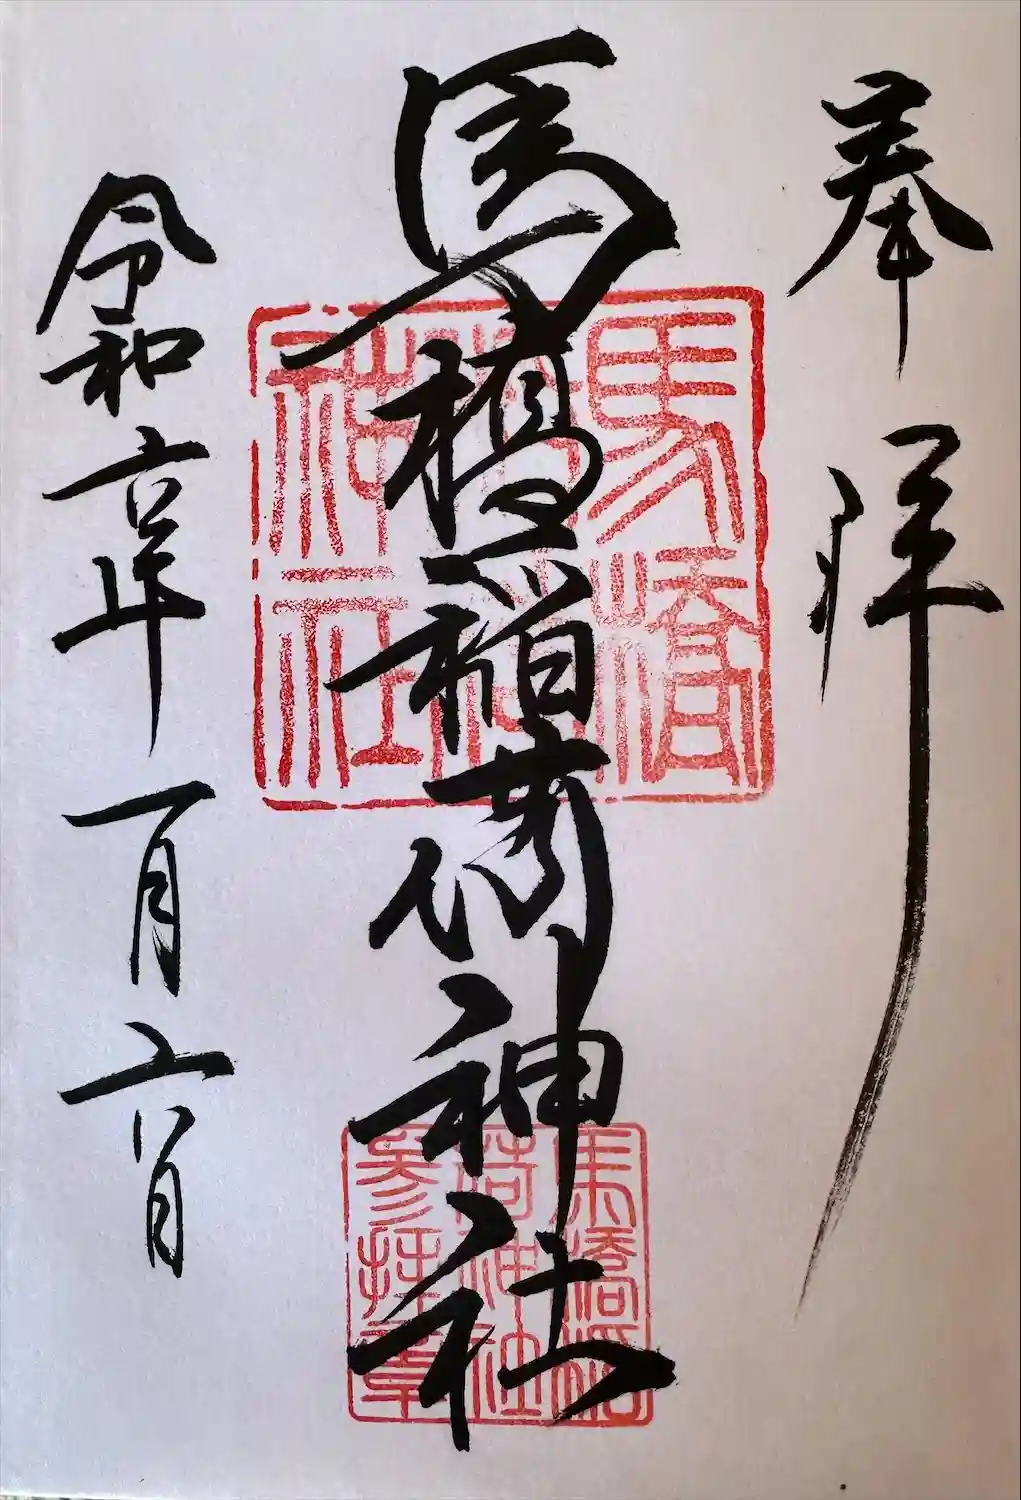 奉拝
馬橋稲荷神社
令和六年一月六日
馬橋
稲荷
神社
馬橋稲
荷神社
参拝章